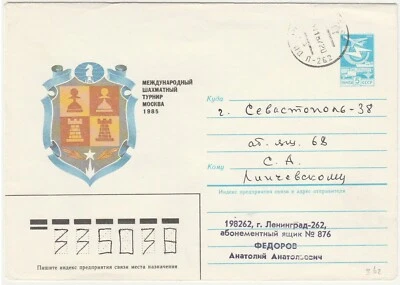 МЕЖДУНАРОДНЫЙ
ШАХМАТНЫЙ
ТУРНИР
МОСКВА
1985
П-262
Куда
г. Севастополь-38
аб. ящ. 68
Кому
С. А.
Линчевскому
Индекс предприятия связи и адрес отправителя
198262, г. Ленинград-262,
абонементный ящик № 876
ФЕДОРОВ
Анатолий Анатольевич
335038
Пишите индекс предприятия связи места назначения